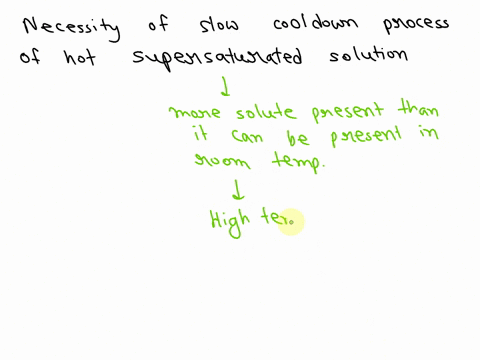 Necessity of slow cooldown process
of hot supersaturated solution
↓
more solute present than
it can be present in
room temp.
↓
High